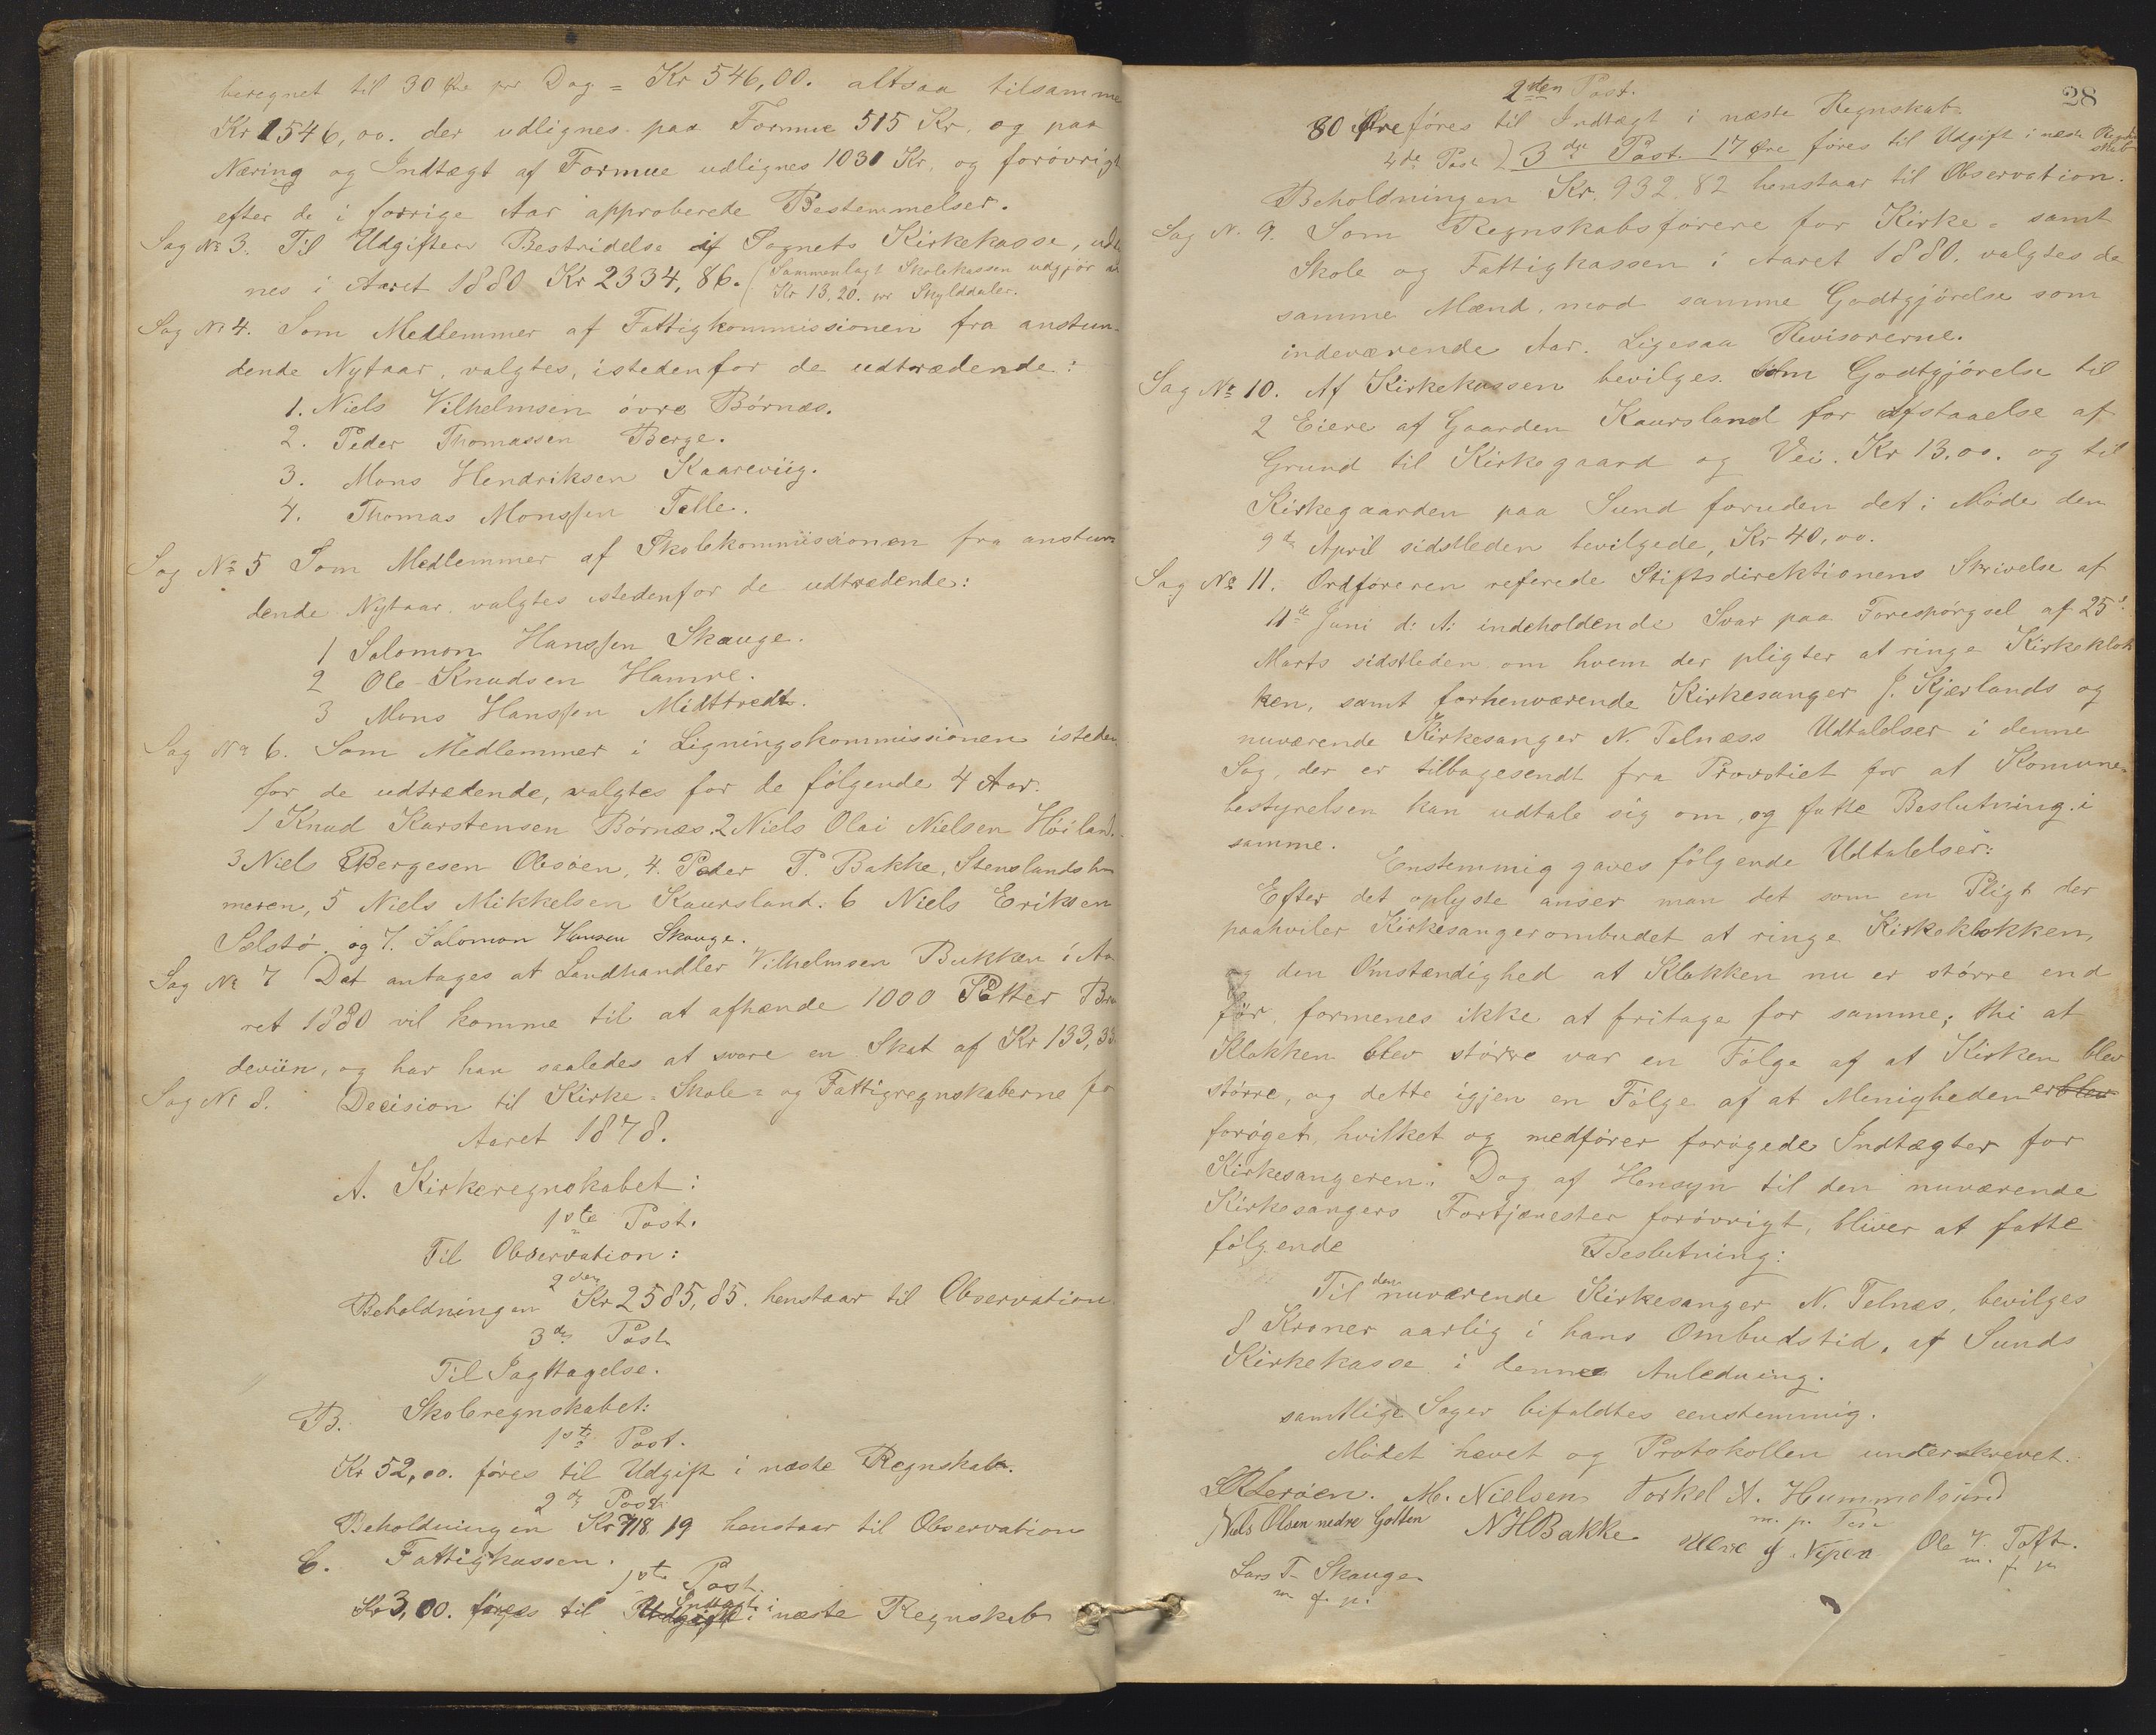 beregnet til 30 Øre pr Dag = Kr 546,00. altsaa tilsamme
Kr 1546,00. der udlignes paa Formue 515 Kr, og paa
Næring og Indtægt af Formue udlignes 1031 Kr, og forövrigt
efter de i forrige Aar approberede Bestemmelser.
Sag No 3. Til Udgifters Bestridelse af Sognets Kirkekasse, udlig
nes i Aaret 1880 Kr 2334,86. (Sammenlagt Skolekassen udgjör
Kr 13,20. pr Skylddaler.
Sag No 4. Som Medlemmer af Fattigkommissionen fra anstun-
dende Nytaar, valgtes, istedenfor de udtrædende:
1. Niels Vilhelmsen övre Börnæs.
2. Peder Thomassen Berge.
3. Mons Hendriksen Kaareviig.
4. Thomas Monssen Telle.
Sag No 5 Som Medlemmer af Skolekommissionen fra anstun
dende Nytaar valgtes istedenfor de udtrædende:
1 Salomon Hanssen Skauge.
2 Ole Knudsen Hamre.
3 Mons Hanssen Midttredt.
Sag No 6. Som Medlemmer i Ligningskommissionen isteden
for de udtrædende, valgtes for de fölgende 4 Aar.
1 Knud Karstensen Börnæs. 2 Niels Olai Nielsen Höiland.
3 Niels Børgesen Olesöen, 4. Peder P. Bakke, Stenslandsha
meren, 5 Niels Mikkelsen Kaursland. 6 Niels Eriksen
Selstö. og 7. Salomon Hansen Skauge.
Sag No 7 Det antages at Landhandler Vilhelmsen Bukken i Aa
ret 1880 vil komme til at afhænde 1000 Potter Bræn
deviin, og har han saaledes at svare en Skat af Kr 133,33.
Sag No 8. Decision til Kirke- Skole- og Fattigregnskaberne for
Aaret 1878.
A. Kirkeregnskabet:
1ste Post.
Til Observation:
2den
Beholdningen Kr 2585,85. henstaar til Observation
3de Post
Til Iagttagelse.
B. Skoleregnskabet:
1ste Post.
Kr 52,00. föres til Udgift i næste Regnskab.
2de Post
Beholdningen Kr 718 19 henstaar til Observation
C. Fattigkassen.
1ste Post.
Kr 3,00. föres til Udgift Indtægt i næste Regnskab
28
2den Post.
80 Øre föres til Indtægt i næste Regnskab
3de Post. 17 Øre föres til Udgift i næste Regn
skab
4de Post
Beholdningen Kr. 932.82 henstaar til Observation.
Sag N. 9. Som Regnskabsförere for Kirke- samt
Skole og Fattigkassen i Aaret 1880. valgtes de
samme Mænd, mod samme Godtgjörelse som
indeværende Aar. Ligesaa Revisorerne.
Sag No 10. Af Kirkekassen bevilges som Godtgjörelse til
2 Eiere af Gaarden Kaursland for Afstaaelse af
Grund til Kirkegaard og Vei. Kr 13.00. og til
Kirkegaarden paa Sund foruden det i Möde den
9de April sidstleden bevilgede, Kr 40,00.
Sag No 11. Ordföreren referede Stiftsdirektionens Skrivelse af
11te Juni d: A: indeholdende Svar paa Forespörgsel af 25.
Marts sidstleden om hvem der pligter at ringe Kirkeklok
ken, samt forhenværende Kirkesanger J. Kjærlands og
nuværende Kirkesanger N. Telnæss Udtalelser i denne
Sag, der er tilbagesendt fra Provstiet for at Komune-
bestyrelsen kan udtale sig om, og fatte Beslutning i
samme.
Enstemmig gaves fölgende Udtalelser:
Efter det oplyste anser man det som en Pligt der
paahviler Kirkesangerombudet at ringe Kirkeklokken,
og den Omstændighed at Klokken nu er större end
för, formenes ikke at fritage for samme; thi at
Klokken blev större var en Fölge af at Kirken blev
större, og dette igjen en Fölge af at Menigheden er blev
foröget, hvilket og medförer forögede Indtægter for
Kirkesangeren. Dog af Hensyn til den nuværende
Kirkesangers Fortjenester forövrigt, bliver at fatte
fölgende
Beslutning:
Til den nuværende Kirkesanger N. Telnæs, bevilges
8 Kroner aarlig i hans Ombudstid, af Sunds
Kirkekasse i dennes Anledning.
samtlige Sager bifaldtes eenstemmig.
Mödet hævet og Protokollen underskrevet.
M. Nielsen Torkel A. Hummelsund
m. p.
Niels Olsen nedre Golten NHBakke Ole Toft.
m. f. p
Lars T. Skauge
m f. p.